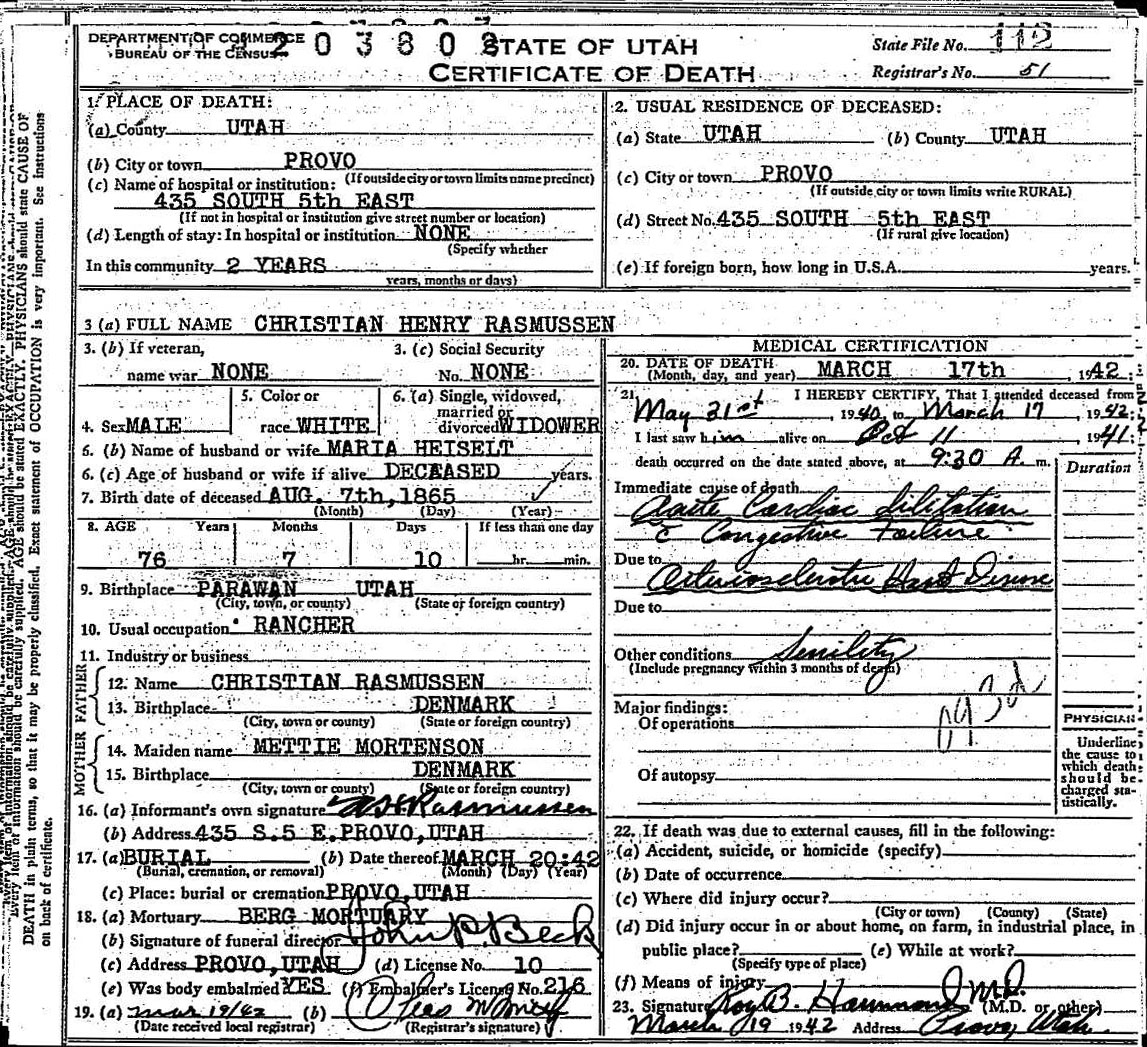 DEPARTMENT OF COMMERCE
BUREAU OF THE CENSUS
STATE OF UTAH
CERTIFICATE OF DEATH
State File No. 112
Registrar's No. 51
1. PLACE OF DEATH:
(a) County UTAH
(b) City or town PROVO
(If outside city or town limits name precinct)
(c) Name of hospital or institution:
435 SOUTH 5th EAST
(If not in hospital or institution give street number or location)
(d) Length of stay: In hospital or institution NONE
(Specify whether
In this community 2 YEARS
years, months or days)
2. USUAL RESIDENCE OF DECEASED:
(a) State UTAH (b) County UTAH
(c) City or town PROVO
(If outside city or town limits write RURAL)
(d) Street No. 435 SOUTH 5th EAST
(If rural give location)
(e) If foreign born, how long in U.S.A. years.
3 (a) FULL NAME CHRISTIAN HENRY RASMUSSEN
3. (b) If veteran, name war NONE
3. (c) Social Security No. NONE
4. Sex MALE
5. Color or race WHITE
6. (a) Single, widowed, married or divorced WIDOWER
6. (b) Name of husband or wife MARIA HEISELT
6. (c) Age of husband or wife if alive DECEASED years.
7. Birth date of deceased AUG. 7th, 1865
(Month) (Day) (Year)
8. AGE Years Months Days If less than one day
76 7 10 hr. min.
9. Birthplace PARAWAN UTAH
(City, town, or county) (State or foreign country)
10. Usual occupation RANCHER
11. Industry or business
FATHER
12. Name CHRISTIAN RASMUSSEN
13. Birthplace DENMARK
(City, town or county) (State or foreign country)
MOTHER
14. Maiden name METTIE MORTENSON
15. Birthplace DENMARK
(City, town or county) (State or foreign country)
16. (a) Informant's own signature Rasmussen
(b) Address 435 S. 5 E. PROVO, UTAH
17. (a) BURIAL (b) Date thereof MARCH 20:42
(Burial, cremation, or removal) (Month) (Day) (Year)
(c) Place: burial or cremation PROVO, UTAH
18. (a) Mortuary BERG MORTUARY
(b) Signature of funeral director John P. Beck
(c) Address PROVO, UTAH (d) License No. 10
(e) Was body embalmed YES (f) Embalmer's License No. 216
19. (a) Mar 19/42 (b)
(Date received local registrar) (Registrar's signature)
MEDICAL CERTIFICATION
20. DATE OF DEATH MARCH 17th, 1942
(Month, day, and year)
21 I HEREBY CERTIFY, That I attended deceased from
May 31st 1940, to March 17, 1942;
I last saw him alive on Oct 11 1941;
death occurred on the date stated above, at 9:30 A. m.
Duration
Immediate cause of death
Acute Cardiac dilitation
c Congestive Failure
Due to
Arteriosclerotic Heart Disease
Due to
Other conditions Senility
(Include pregnancy within 3 months of death)
Major findings:
Of operations
Of autopsy
PHYSICIAN
Underline
the cause to
which death
should be
charged sta-
tistically.
22. If death was due to external causes, fill in the following:
(a) Accident, suicide, or homicide (specify)
(b) Date of occurrence
(c) Where did injury occur?
(City or town) (County) (State)
(d) Did injury occur in or about home, on farm, in industrial place, in
public place? (e) While at work?
(Specify type of place)
(f) Means of injury
23. Signature Roy B. Hammond M.D. (M.D. or other)
March 19 1942 Address Provo, Utah
Every item of information should be carefully supplied. AGE should be stated EXACTLY. PHYSICIANS should state CAUSE OF
DEATH in plain terms, so that it may be properly classified. Exact statement of OCCUPATION is very important. See instructions
on back of certificate.